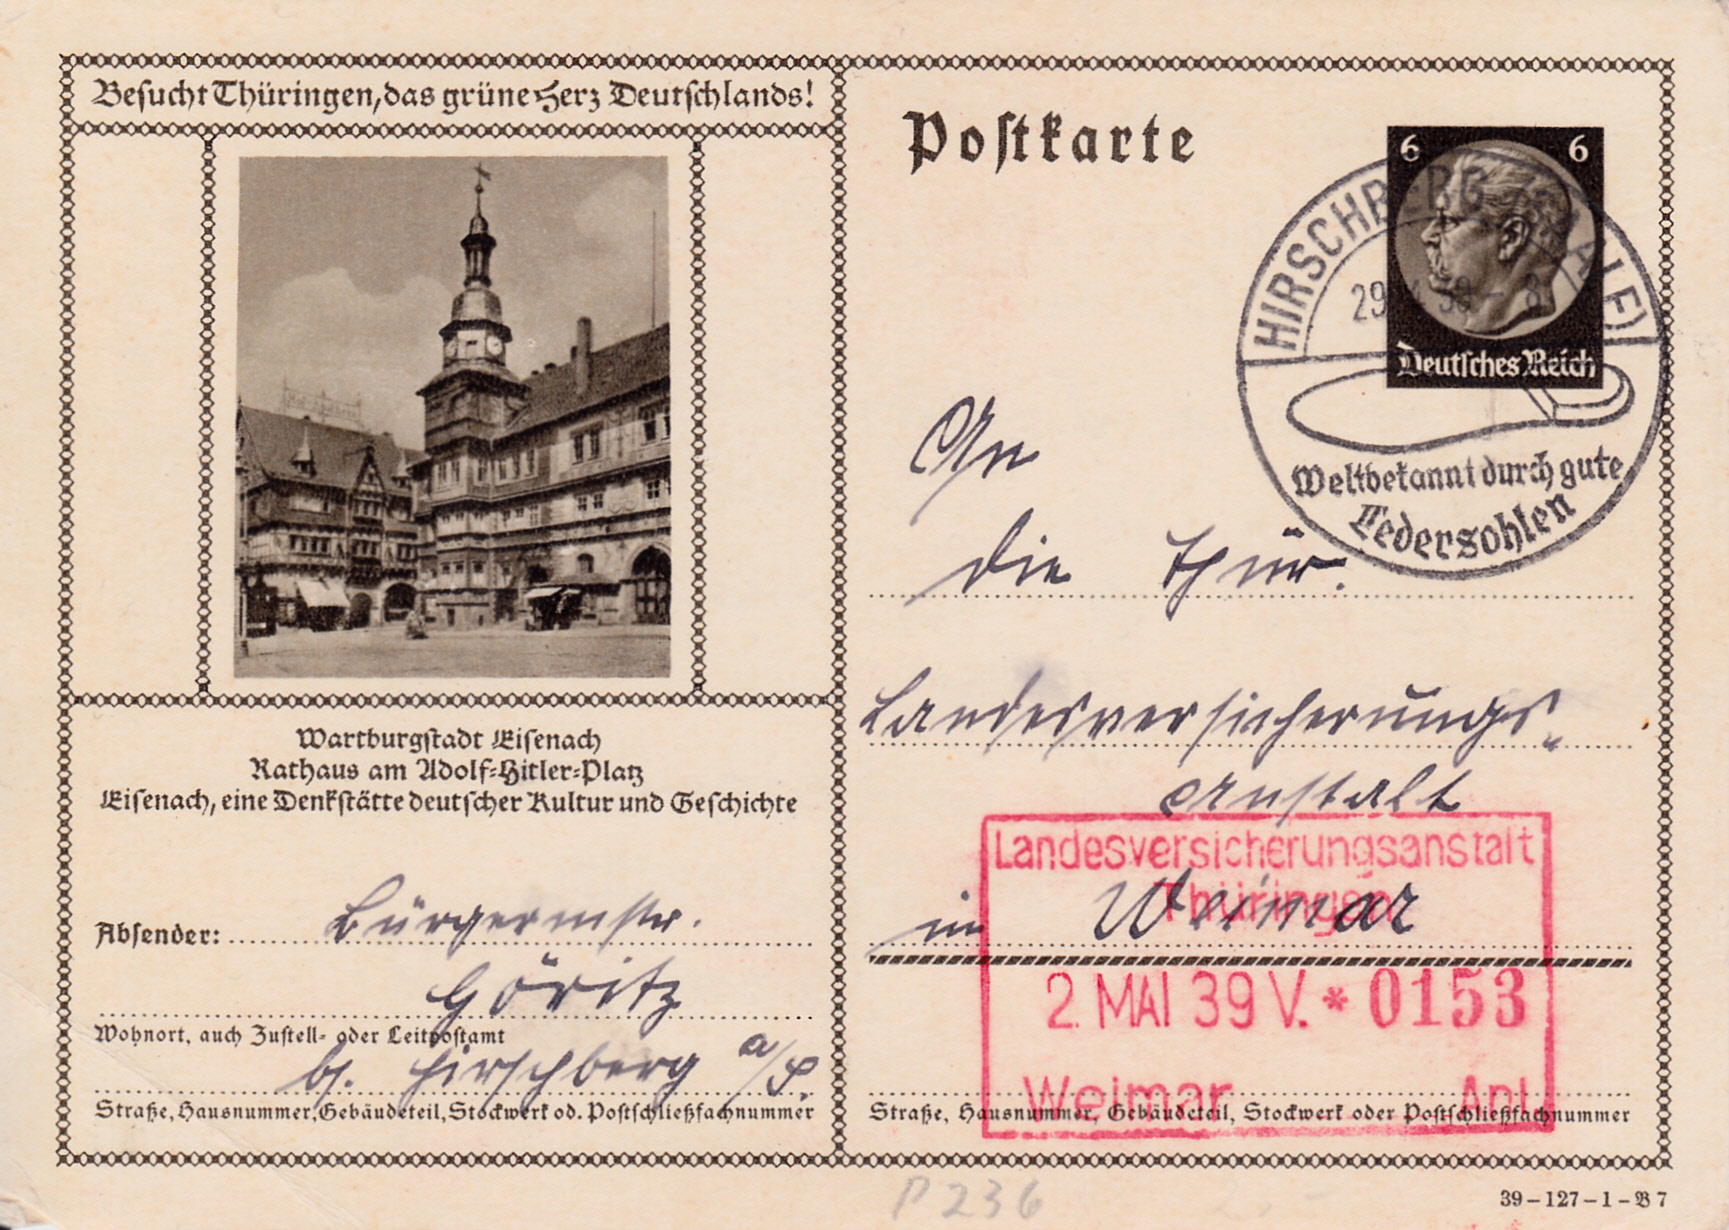 Besucht Thüringen, das grüne Herz Deutschlands!
Postkarte
6 6
Deutsches Reich
HIRSCHBERG (SAALE)
29. 4. 39 - 8
Weltbekannt durch gute
Ledersohlen
An
die Thür.
Landesversicherungs-
anstalt
in Weimar
Landesversicherungsanstalt
Thüringen
2. MAI 39 V. * 0153
Weimar Anl.
Straße, Hausnummer, Gebäudeteil, Stockwerk oder Postschließfachnummer
Wartburgstadt Eisenach
Rathaus am Adolf-Hitler-Platz
Eisenach, eine Denkstätte deutscher Kultur und Geschichte
Absender: Bürgermstr.
Göritz
Wohnort, auch Zustell- oder Leitpostamt
bf. Hirschberg a/S.
Straße, Hausnummer, Gebäudeteil, Stockwerk od. Postschließfachnummer
P 236
39-127-1-B 7